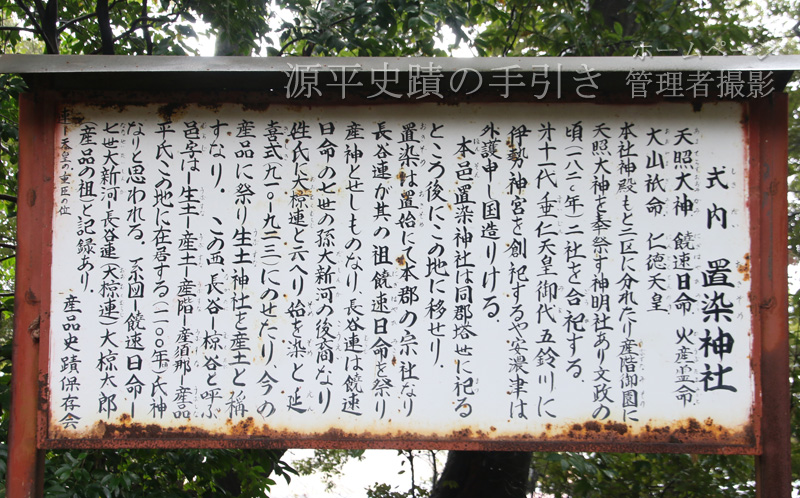 源平史蹟の手引き
ホームページ
管理者撮影
式内 置染神社
天照大神 饒速日命 火産霊命
大山祇命 仁徳天皇
本社神殿もと三区に分れたり産階御園に
天照大神を奉祭す神明社あり文政の
頃(一八二〇年)二社を合祀する。
十一代垂仁天皇御代五鈴川に
伊勢の神宮を創祀するや安濃津は
外護申し国造りける。
本邑置染神社は同郡塔世に祀る
ところ後にこの地に移せり。
置染は置始にて本郡の宗社なり
長谷連が其の祖饒速日命を祭り
産神とせしものなり、長谷連は饒速
日命の七世の孫大新河の後裔なり
姓氏に大椋連と云へり始を染と延
喜式九一〇-九二三)にのせたり、今の
産品に祭り生土神社を産土と称
すなり。この西、長谷-椋谷と呼ぶ
邑字は-生土-産土-産階-産須那-産品
平氏この地に在居する(一一〇〇年)氏神
なりと思われる。系図-饒速日命-
七世大新河-長谷連(大椋連)大椋太郎
(産品の祖)と記録あり。
天皇の重臣の位
産品史蹟保存会